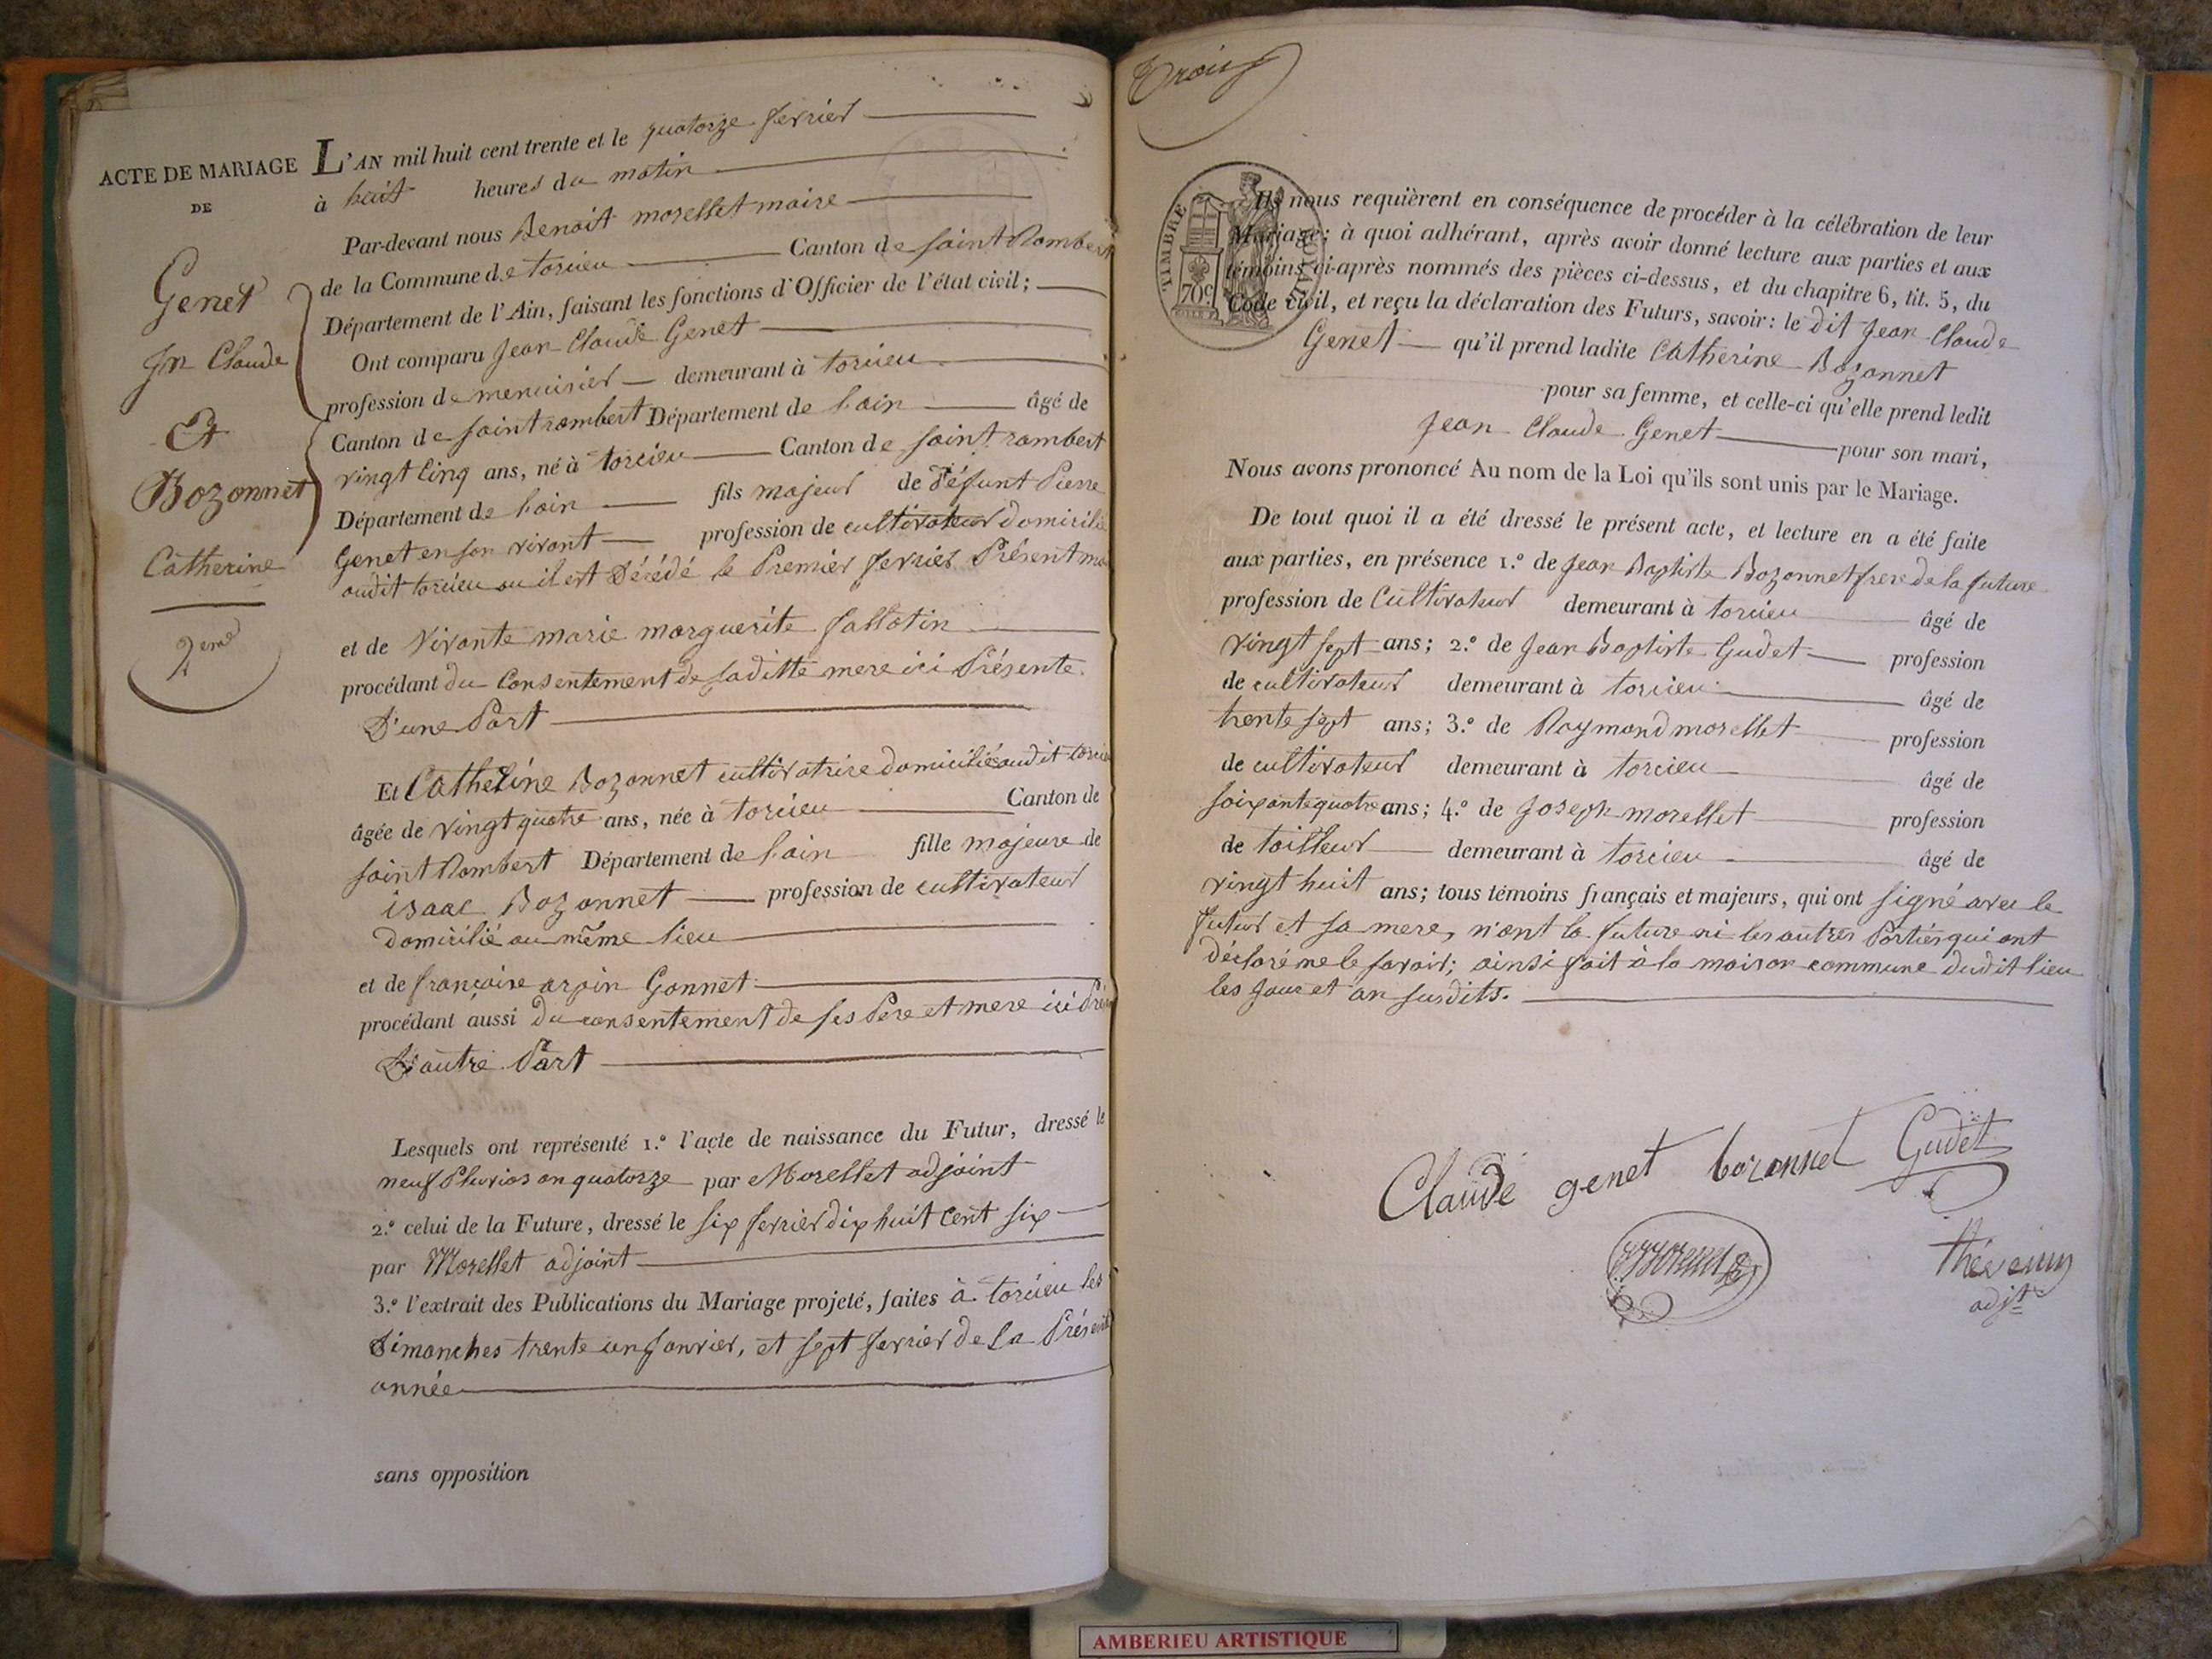 ACTE DE MARIAGE
DE
Genet
Jn Claude
Et
Bozonnet
Catherine
2eme
L'AN mil huit cent trente et le quatorze fevrier
à huit heures du matin
Par-devant nous Benoit morellet maire
de la Commune de torcieu Canton de saint Rambert
Département de l'Ain, faisant les fonctions d'Officier de l'état civil;
Ont comparu Jean Claude Genet
profession de menuisier demeurant à torcieu
Canton de saint rambert Département de lain âgé de
vingt cinq ans, né à torcieu Canton de saint rambert
Département de lain fils majeur de défunt Pierre
Genet en son vivant profession de cultivateur domicilié
audit torcieu ou il est Décédé le Premier fevrier Présent mois
et de vivante marie marguerite sallatin
procédant du Consentement de saditte mere ici Présente
D'une Part
Et Catherine Bozonnet cultivatrice domiciliée audit torcieu
âgée de vingt quatre ans, née à torcieu Canton de
saint Rambert Département de lain fille majeure de
isaac Bozonnet profession de cultivateur
domicilié au même lieu
et de françoise arpin Gonnet
procédant aussi du consentement de ses Pere et mere ici
D'autre Part
Lesquels ont représenté 1.º l'acte de naissance du Futur, dressé le
neuf Pluvios an quatorze par Morellet adjoint
2.º celui de la Future, dressé le six fevrier dix huit cent six
par Morellet adjoint
3.º l'extrait des Publications du Mariage projeté, faites à torcieu les
Dimanches trente un janvier, et sept fevrier de la Présente
année
sans opposition
Trois
TIMBRE ROYAL
70c
Ils nous requièrent en conséquence de procéder à la célébration de leur
Mariage; à quoi adhérant, après avoir donné lecture aux parties et aux
témoins ci-après nommés des pièces ci-dessus, et du chapitre 6, tit. 5, du
Code civil, et reçu la déclaration des Futurs, savoir: le dit Jean Claude
Genet qu'il prend ladite Catherine Bozonnet
pour sa femme, et celle-ci qu'elle prend ledit
Jean Claude Genet pour son mari,
Nous avons prononcé Au nom de la Loi qu'ils sont unis par le Mariage.
De tout quoi il a été dressé le présent acte, et lecture en a été faite
aux parties, en présence 1.º de Jean Baptiste Bozonnet frere de la future
profession de Cultivateur demeurant à torcieu âgé de
vingt sept ans; 2.º de Jean Baptiste Gudet profession
de cultivateur demeurant à torcieu âgé de
trente sept ans; 3.º de Raymond morellet profession
de cultivateur demeurant à torcieu âgé de
soixante quatre ans; 4.º de Joseph morellet profession
de tailleur demeurant à torcieu âgé de
vingt huit ans; tous témoins français et majeurs, qui ont signé avec le
futur et sa mere, n'ont la future ni les autres Parties qui ont
déclaré ne le savoir; ainsi fait à la maison commune dudit lieu
les jour et an susdits.
Claude genet bozonnet Gudet
Thévenin
adjt
AMBERIEU ARTISTIQUE